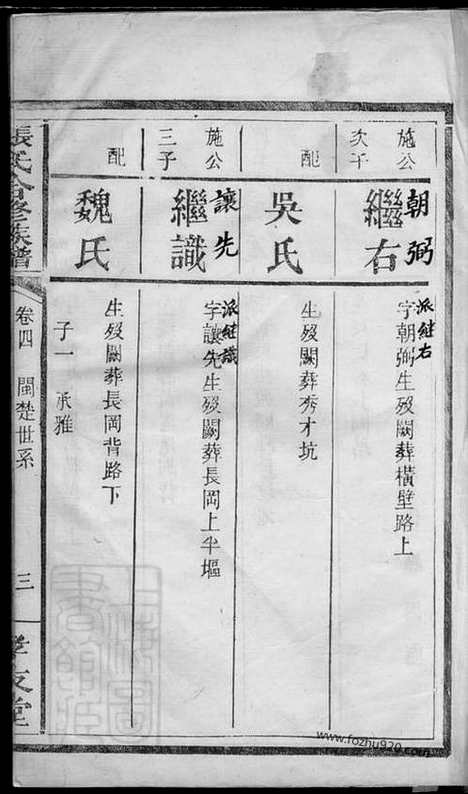 施公
次子
繼右
朝弼
派继右
字朝弼生歿闕葬橫壁路上
配
吳氏
生歿闕葬秀才坑
施公
三子
繼識
讓先
派继識
字讓先生歿闕葬長岡上半塸
配
魏氏
生歿闕葬長岡背路下
子一 承雅
張氏合修族譜
卷四 閩楚世系
三
孝友堂
www.fozhu920.com